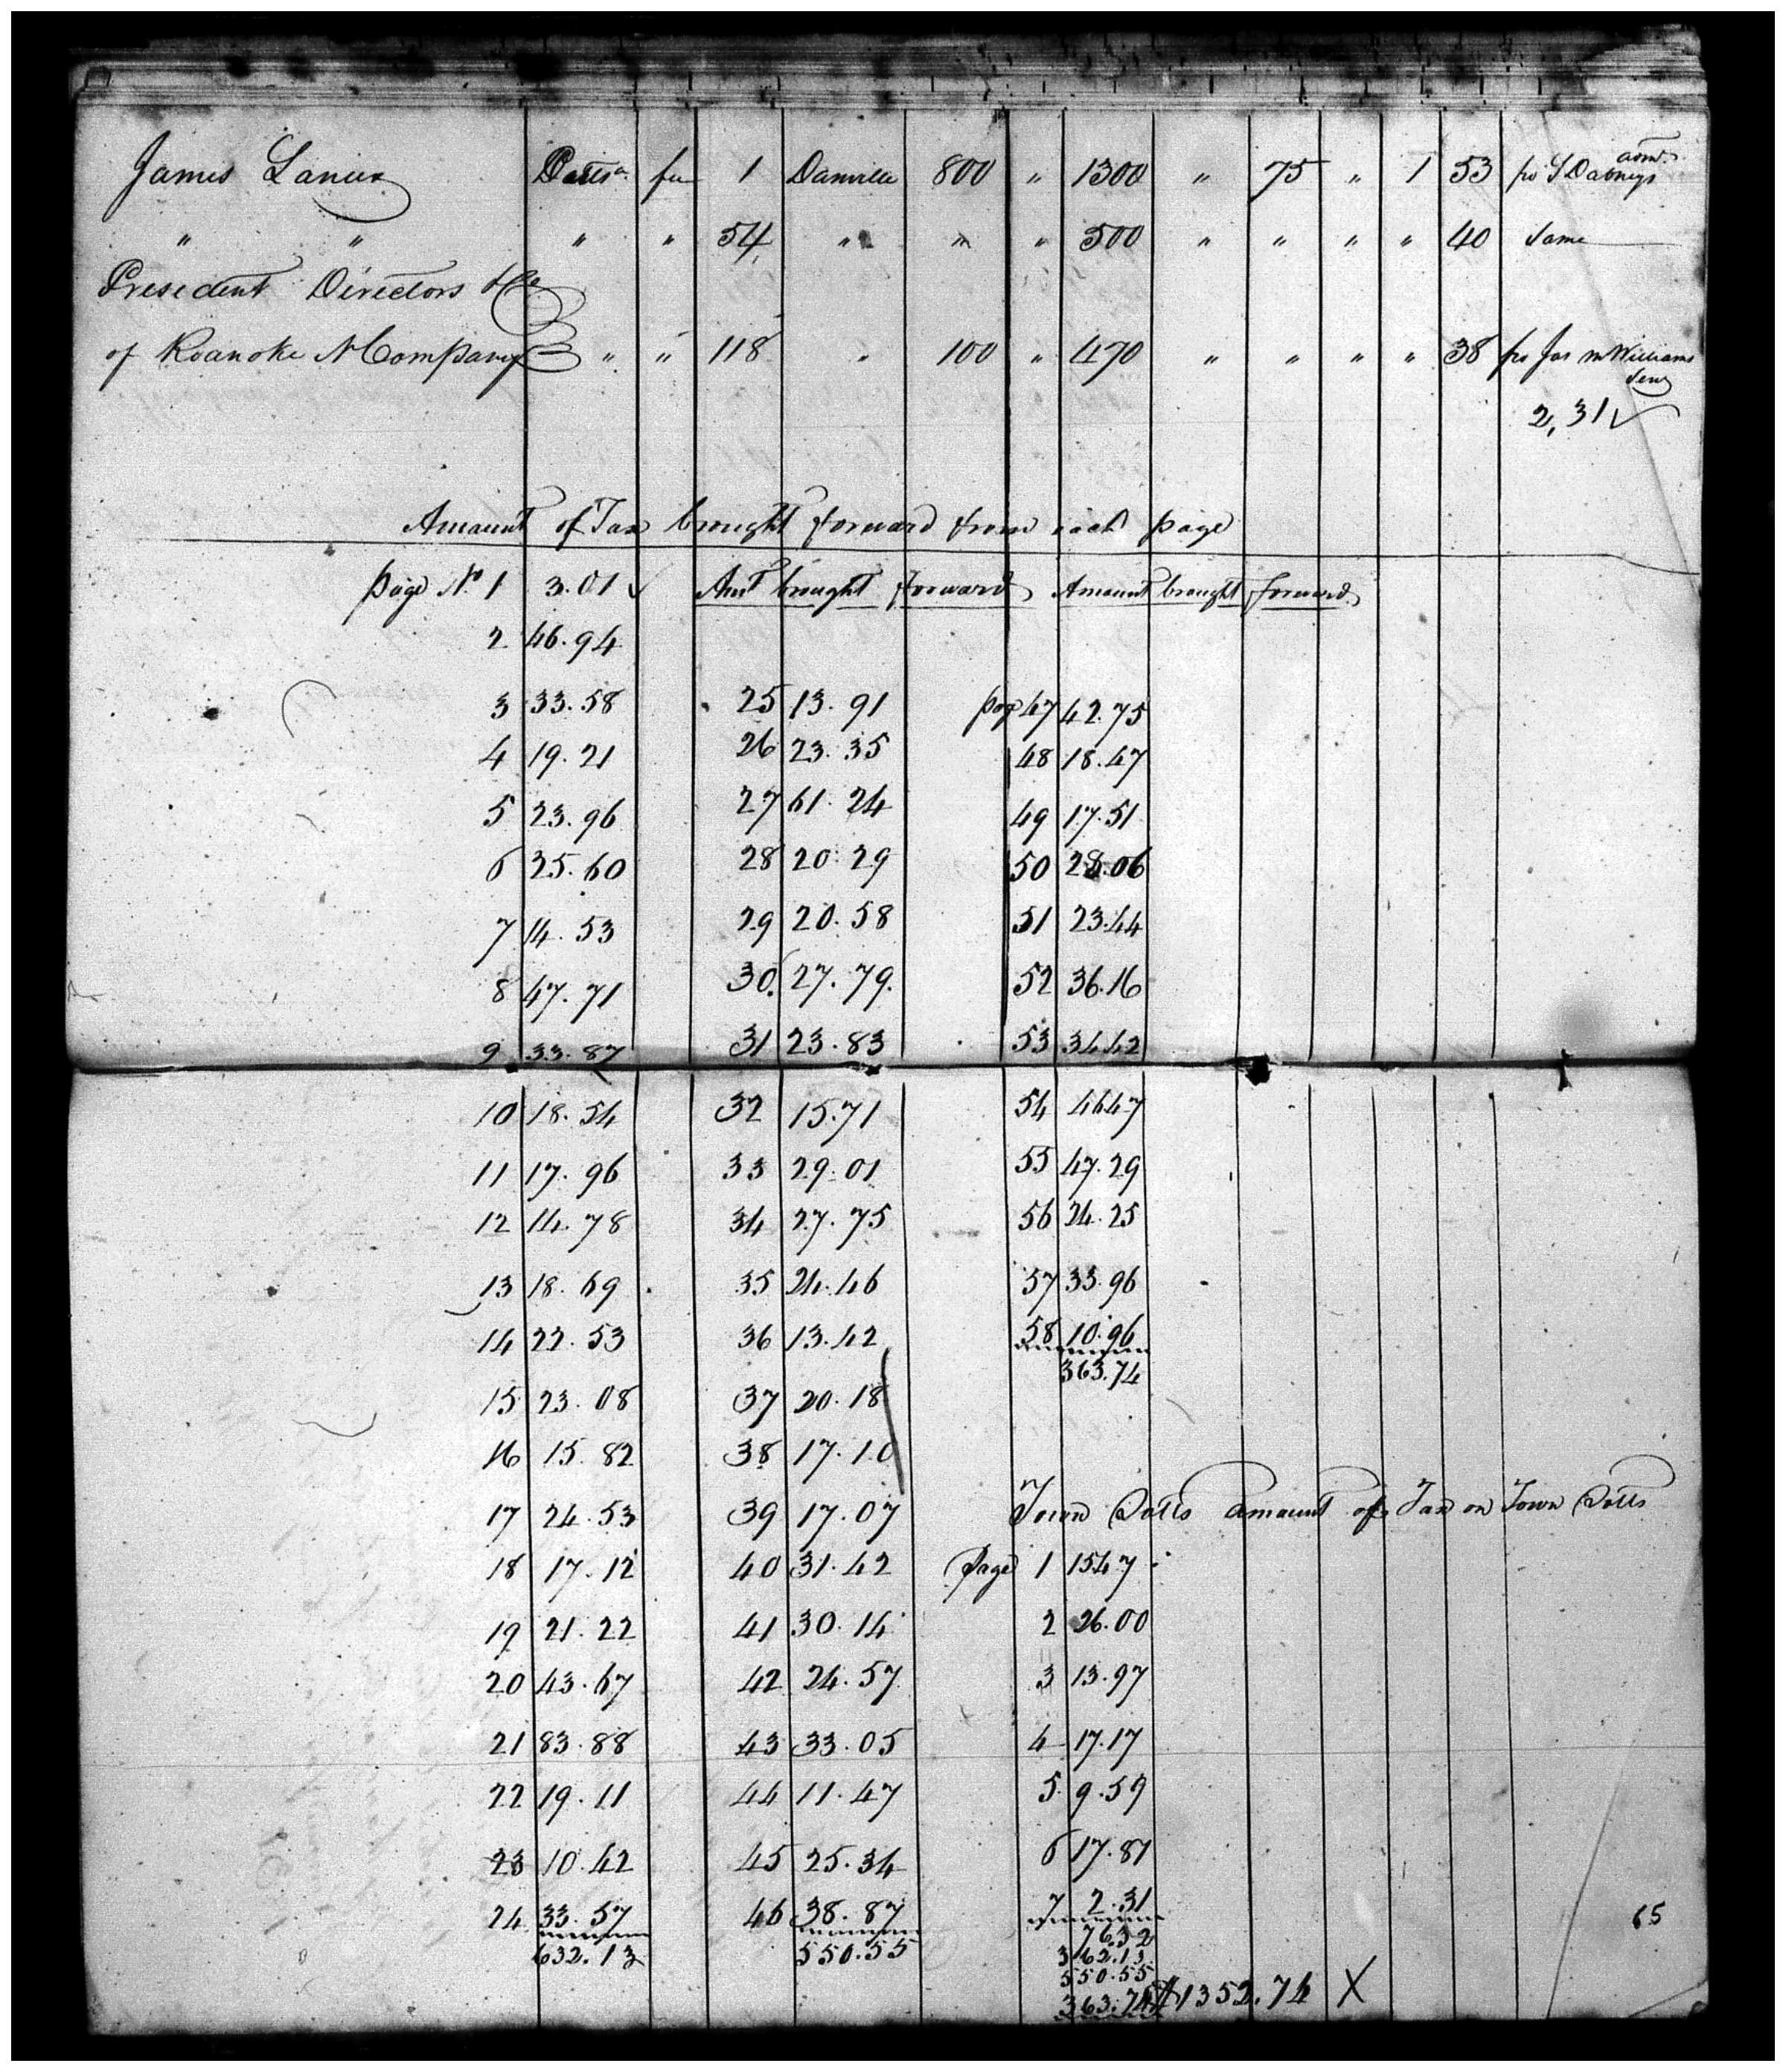 James Lanier Pattsa fee 1 Danville 800 " 1300 " 75 " 1 53 pr S Dabneys admr
" " " " 54 " " " 500 " " " " 40 Same
President Directors &c
of Roanoke N Company " " 118 " 100 " 470 " " " " 38 pr Jas M Williams
Senr
2,31 ✓
Amount of Tax brought forward from each page
page No. 1 3.01 ✓ Amt brought forward Amount brought forward
2 46.94
3 33.58 25 13.91 page 47 42.75
4 19.21 26 23.35 48 18.47
5 23.96 27 61.24 49 17.51
6 25.60 28 20.29 50 28.06
7 14.53 29 20.58 51 23.44
8 47.71 30. 27.79. 52 36.16
9 33.87 31 23.83 53 34.42
10 18.54 32 15.71 54 46.47
11 17.96 33 29.01 55 47.29
12 14.78 34 27.75 56 24.25
13 18.69 35 24.46 57 33.96
14 22.53 36 13.42 58 10.96
363.74
15 23.08 37 20.18
16 15.82 38 17.10
17 24.53 39 17.07 Town Lotts amount of Tax on Town Lotts
18 17.12 40 31.42 Page 1 15.47
19 21.22 41 30.14 2 26.00
20 43.67 42 24.57 3 13.97
21 83.88 43 33.05 4 17.17
22 19.11 44 11.47 5. 9.59
23 10.42 45 25.34 6 17.81
24 33.57 46 38.87 7 2.31
632.13 550.55 76.32
362.13
550.55
363.74 $1352.74 X
65